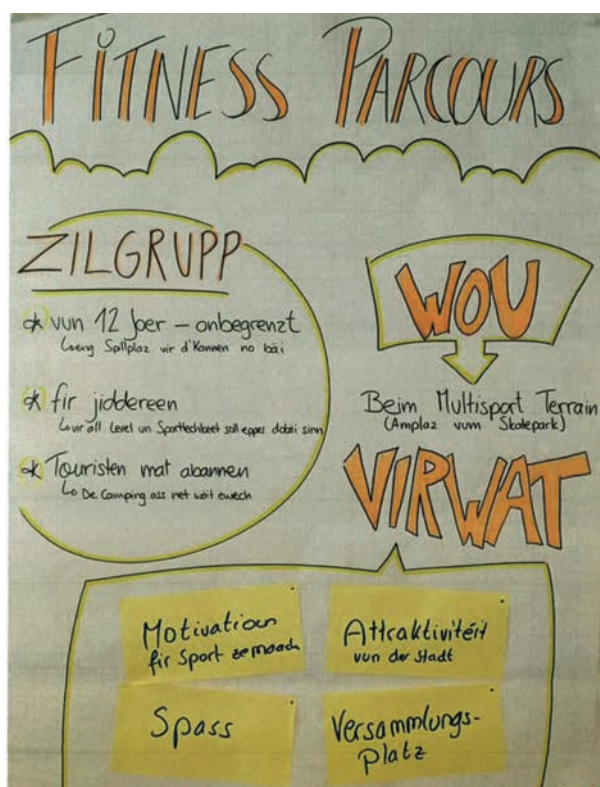 FITNESS PARCOURS
ZILGRUPP
vun 12 Joer – onbegrenzt
eng Spillplaz vir d'Kanner no bäi
fir jiddereen
vir all Level un Sportlechkeet soll eppes dobäi sinn
Touristen mat abannen
De Camping ass net wäit ewech
WOU
Beim Multisport Terrain
(Amplaz vum Skatepark)
VIRWAT
Motivatioun
fir Sport ze maachen
Attraktivitéit
vun der Stadt
Spass
Versammlungs-
platz